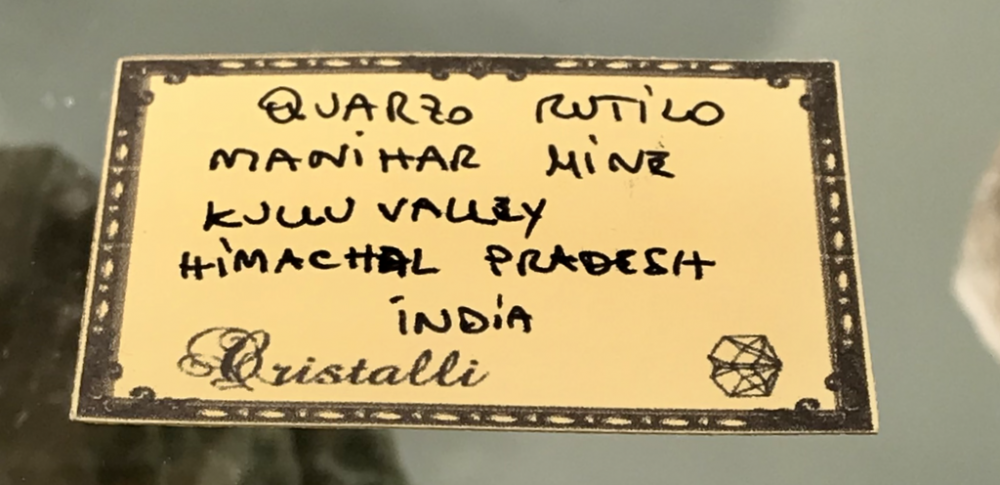 QUARZO RUTILO
MANIHAR MINE
KULLU VALLEY
HIMACHAL PRADESH
INDIA
Cristalli